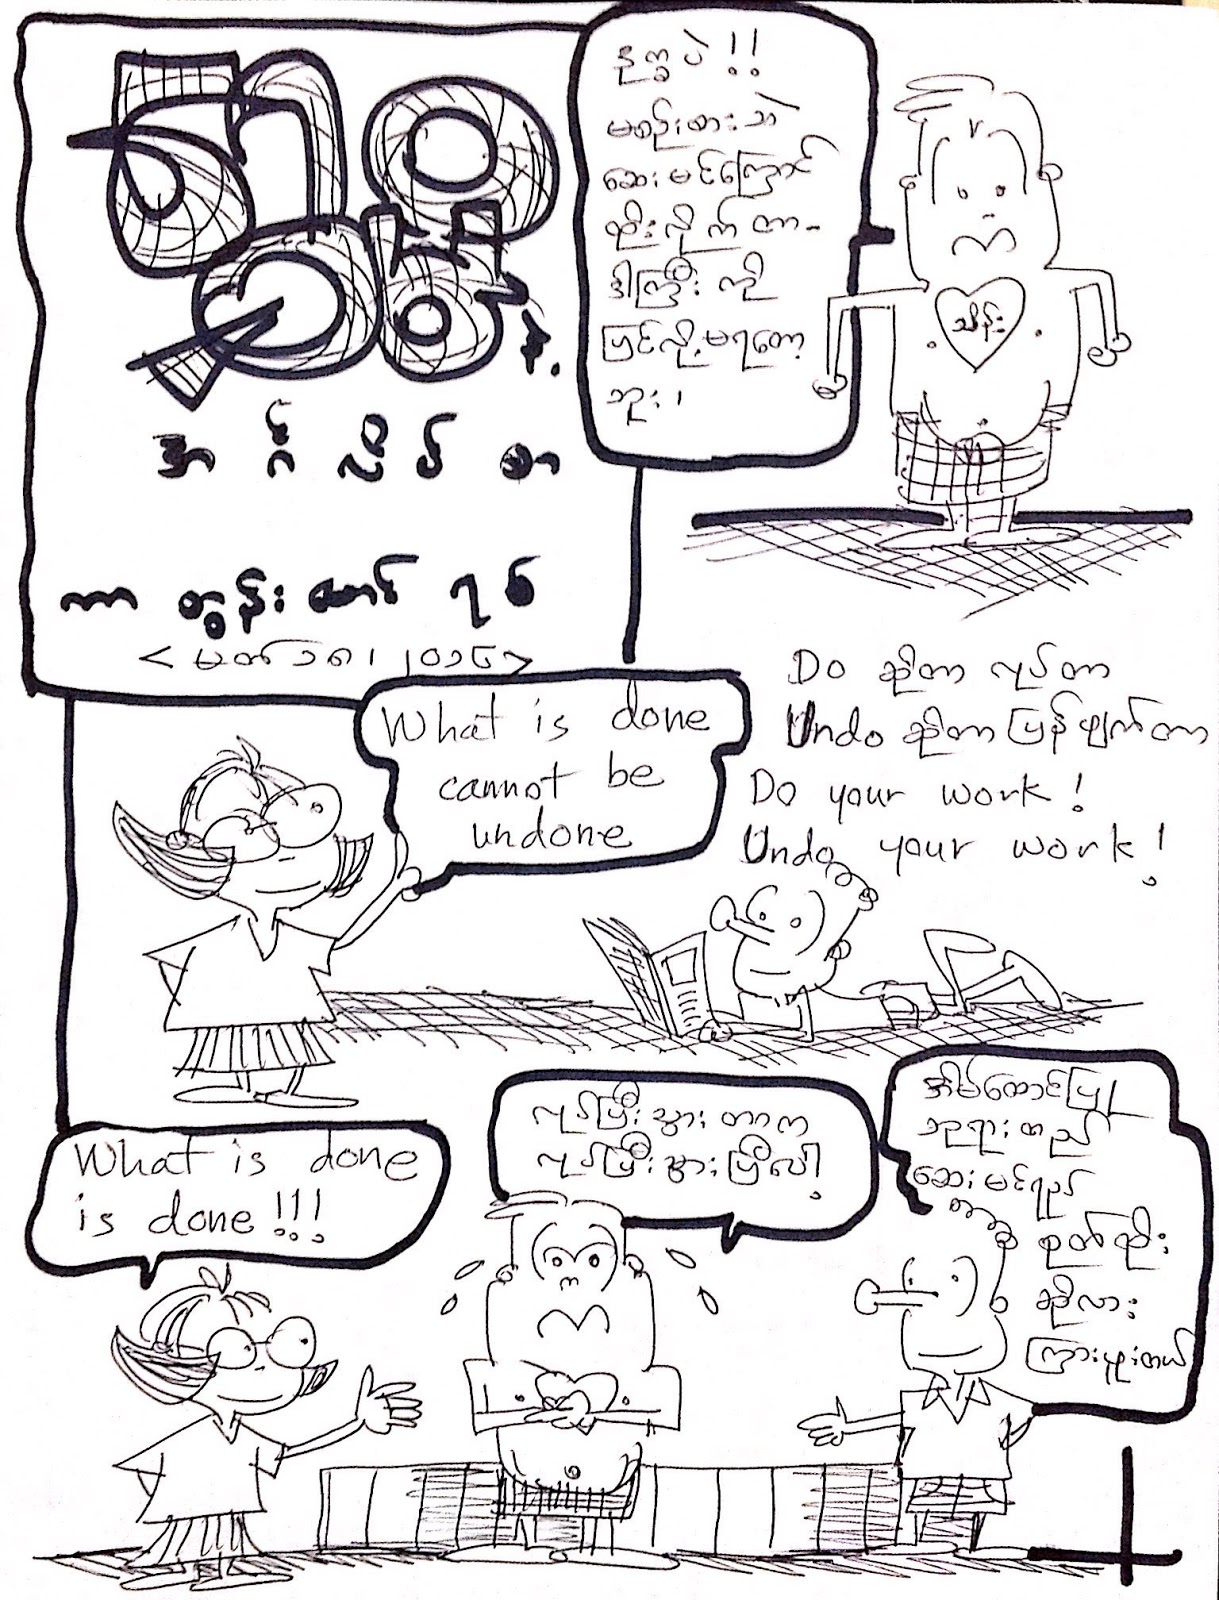 ဟာသ
နဲ့
အင်္ဂလိပ်စာ
ကာတွန်းအောင်ရစ်
ဒုက္ခပဲ !!
မစဉ်းစားဘဲ
ဆေးမင်ကြောင်
ထိုးလိုက်တာ
ဒါကြီးကို
ပြင်လို့မရတော့
ဘူး၊
သိန်း
Do ဆိုတာ လုပ်တာ
Undo ဆိုတာ ပြန်ဖျက်တာ
Do your work!
Undo your work!
What is done
cannot be
undone
What is done
is done !!!
လုပ်ပြီးသွားတာက
လုပ်ပြီးသွားပြီပေါ့
အိမ်ထောင်ပြု
ဆေးမင်ရည်
စုတ်ထိုး
ဆိုလား
ကြားဖူးတယ်